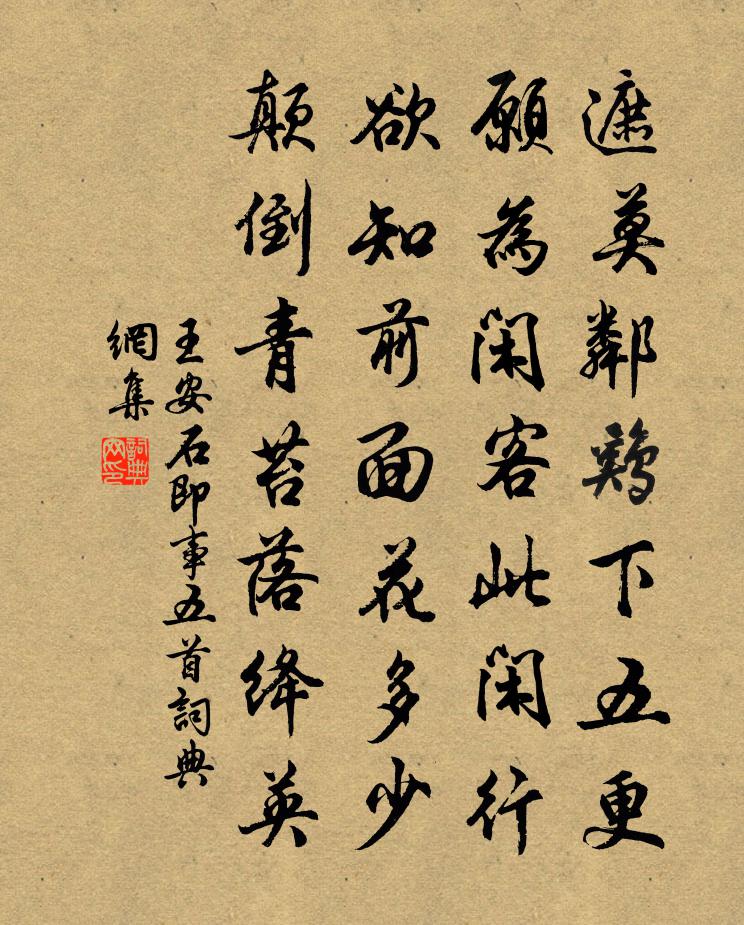 遮莫鄰鷄下五更
願為閑客此閑行
欲知前面花多少
顛倒青苔落絳英
王安石即事五首詞典
網集
詞典
网印